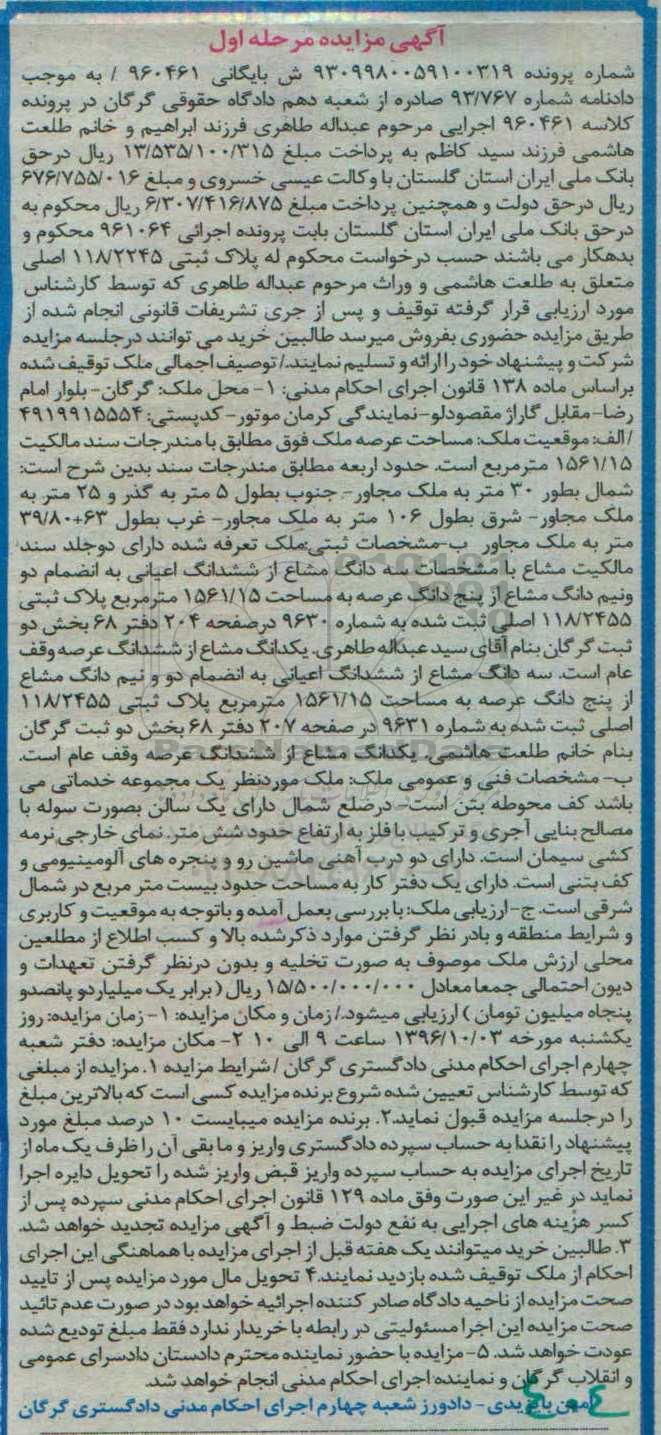 آگهی مزایده مرحله اول
شماره پرونده ۹۳۰۹۹۸۰۰۵۹۱۰۰۳۱۹ ش بایگانی ۹۶۰۴۶۱ / به موجب
دادنامه شماره ۹۳/۷۶۷ صادره از شعبه دهم دادگاه حقوقی گرگان در پرونده
کلاسه ۹۶۰۴۶۱ اجرایی مرحوم عبداله طاهری فرزند ابراهیم و خانم طلعت
هاشمی فرزند سید کاظم به پرداخت مبلغ ۱۳/۵۳۵/۱۰۰/۳۱۵ ریال درحق
بانک ملی ایران استان گلستان با وکالت عیسی خسروی و مبلغ ۶۷۶/۷۵۵/۰۱۶
ریال درحق دولت و همچنین پرداخت مبلغ ۶/۳۰۷/۴۱۶/۸۷۵ ریال محکوم به
درحق بانک ملی ایران استان گلستان بابت پرونده اجرائی ۹۶۱۰۶۴ محکوم و
بدهکار می باشند حسب درخواست محکوم له پلاک ثبتی ۱۱۸/۲۲۴۵ اصلی
متعلق به طلعت هاشمی و وراث مرحوم عبداله طاهری که توسط کارشناس
مورد ارزیابی قرار گرفته توقیف و پس از جری تشریفات قانونی انجام شده از
طریق مزایده حضوری بفروش میرسد طالبین خرید می توانند درجلسه مزایده
شرکت و پیشنهاد خود را ارائه و تسلیم نمایند./ توصیف اجمالی ملک توقیف شده
براساس ماده ۱۳۸ قانون اجرای احکام مدنی: ۱- محل ملک: گرگان- بلوار امام
رضا- مقابل گاراژ مقصودلو- نمایندگی کرمان موتور- کدپستی: ۴۹۱۹۹۱۵۵۵۴
/ الف: موقعیت ملک: مساحت عرصه ملک فوق مطابق با مندرجات سند مالکیت
۱۵۶۱/۱۵ مترمربع است. حدود اربعه مطابق مندرجات سند بدین شرح است:
شمال بطور ۳۰ متر به ملک مجاور- جنوب بطول ۵ متر به گذر و ۲۵ متر به
ملک مجاور- شرق بطول ۱۰۶ متر به ملک مجاور- غرب بطول ۶۳+۳۹/۸۰
متر به ملک مجاور ب-مشخصات ثبتی:ملک تعرفه شده دارای دوجلد سند
مالکیت مشاع با مشخصات سه دانگ مشاع از ششدانگ اعیانی به انضمام دو
ونیم دانگ مشاع از پنج دانگ عرصه به مساحت ۱۵۶۱/۱۵ مترمربع پلاک ثبتی
۱۱۸/۲۴۵۵ اصلی ثبت شده به شماره ۹۶۳۰ درصفحه ۲۰۴ دفتر ۶۸ بخش دو
ثبت گرگان بنام آقای سید عبداله طاهری. یکدانگ مشاع از ششدانگ عرصه وقف
عام است. سه دانگ مشاع از ششدانگ اعیانی به انضمام دو و نیم دانگ مشاع
از پنج دانگ عرصه به مساحت ۱۵۶۱/۱۵ مترمربع پلاک ثبتی ۱۱۸/۲۴۵۵
اصلی ثبت شده به شماره ۹۶۳۱ در صفحه ۲۰۷ دفتر ۶۸ بخش دو ثبت گرگان
بنام خانم طلعت هاشمی. یکدانگ مشاع از ششدانگ عرصه وقف عام است.
ب- مشخصات فنی و عمومی ملک: ملک موردنظر یک مجموعه خدماتی می
باشد کف محوطه بتن است- درضلع شمال دارای یک سالن بصورت سوله با
مصالح بنایی آجری و ترکیب با فلز به ارتفاع حدود شش متر. نمای خارجی نرمه
کشی سیمان است. دارای دو درب آهنی ماشین رو و پنجره های آلومینیومی و
کف بتنی است. دارای یک دفتر کار به مساحت حدود بیست متر مربع در شمال
شرقی است. ج- ارزیابی ملک: با بررسی بعمل آمده و باتوجه به موقعیت و کاربری
و شرایط منطقه و بادر نظر گرفتن موارد ذکرشده بالا و کسب اطلاع از مطلعین
محلی ارزش ملک موصوف به صورت تخلیه و بدون درنظر گرفتن تعهدات و
دیون احتمالی جمعا معادل ۱۵/۵۰۰/۰۰۰/۰۰۰ ریال ( برابر یک میلیاردو پانصدو
پنجاه میلیون تومان ) ارزیابی میشود./ زمان و مکان مزایده: ۱- زمان مزایده: روز
یکشنبه مورخه ۱۳۹۶/۱۰/۰۳ ساعت ۹ الی ۱۰ ۲- مکان مزایده: دفتر شعبه
چهارم اجرای احکام مدنی دادگستری گرگان / شرایط مزایده ۱. مزایده از مبلغی
که توسط کارشناس تعیین شده شروع برنده مزایده کسی است که بالاترین مبلغ
را درجلسه مزایده قبول نماید.۲. برنده مزایده میبایست ۱۰ درصد مبلغ مورد
پیشنهاد را نقدا به حساب سپرده دادگستری واریز و مابقی آن را ظرف یک ماه از
تاریخ اجرای مزایده به حساب سپرده واریز قبض واریز شده را تحویل دایره اجرا
نماید در غیر این صورت وفق ماده ۱۲۹ قانون اجرای احکام مدنی سپرده پس از
کسر هزینه های اجرایی به نفع دولت ضبط و آگهی مزایده تجدید خواهد شد.
۳. طالبین خرید میتوانند یک هفته قبل از اجرای مزایده با هماهنگی این اجرای
احکام از ملک توقیف شده بازدید نمایند.۴ تحویل مال مورد مزایده پس از تایید
صحت مزایده از ناحیه دادگاه صادر کننده اجرائیه خواهد بود در صورت عدم تائید
صحت مزایده این اجرا مسئولیتی در رابطه با خریدار ندارد فقط مبلغ تودیع شده
عودت خواهد شد. ۵- مزایده با حضور نماینده محترم دادستان دادسرای عمومی
و انقلاب گرگان و نماینده اجرای احکام مدنی انجام خواهد شد.
دادورز شعبه چهارم اجرای احکام مدنی دادگستری گرگان